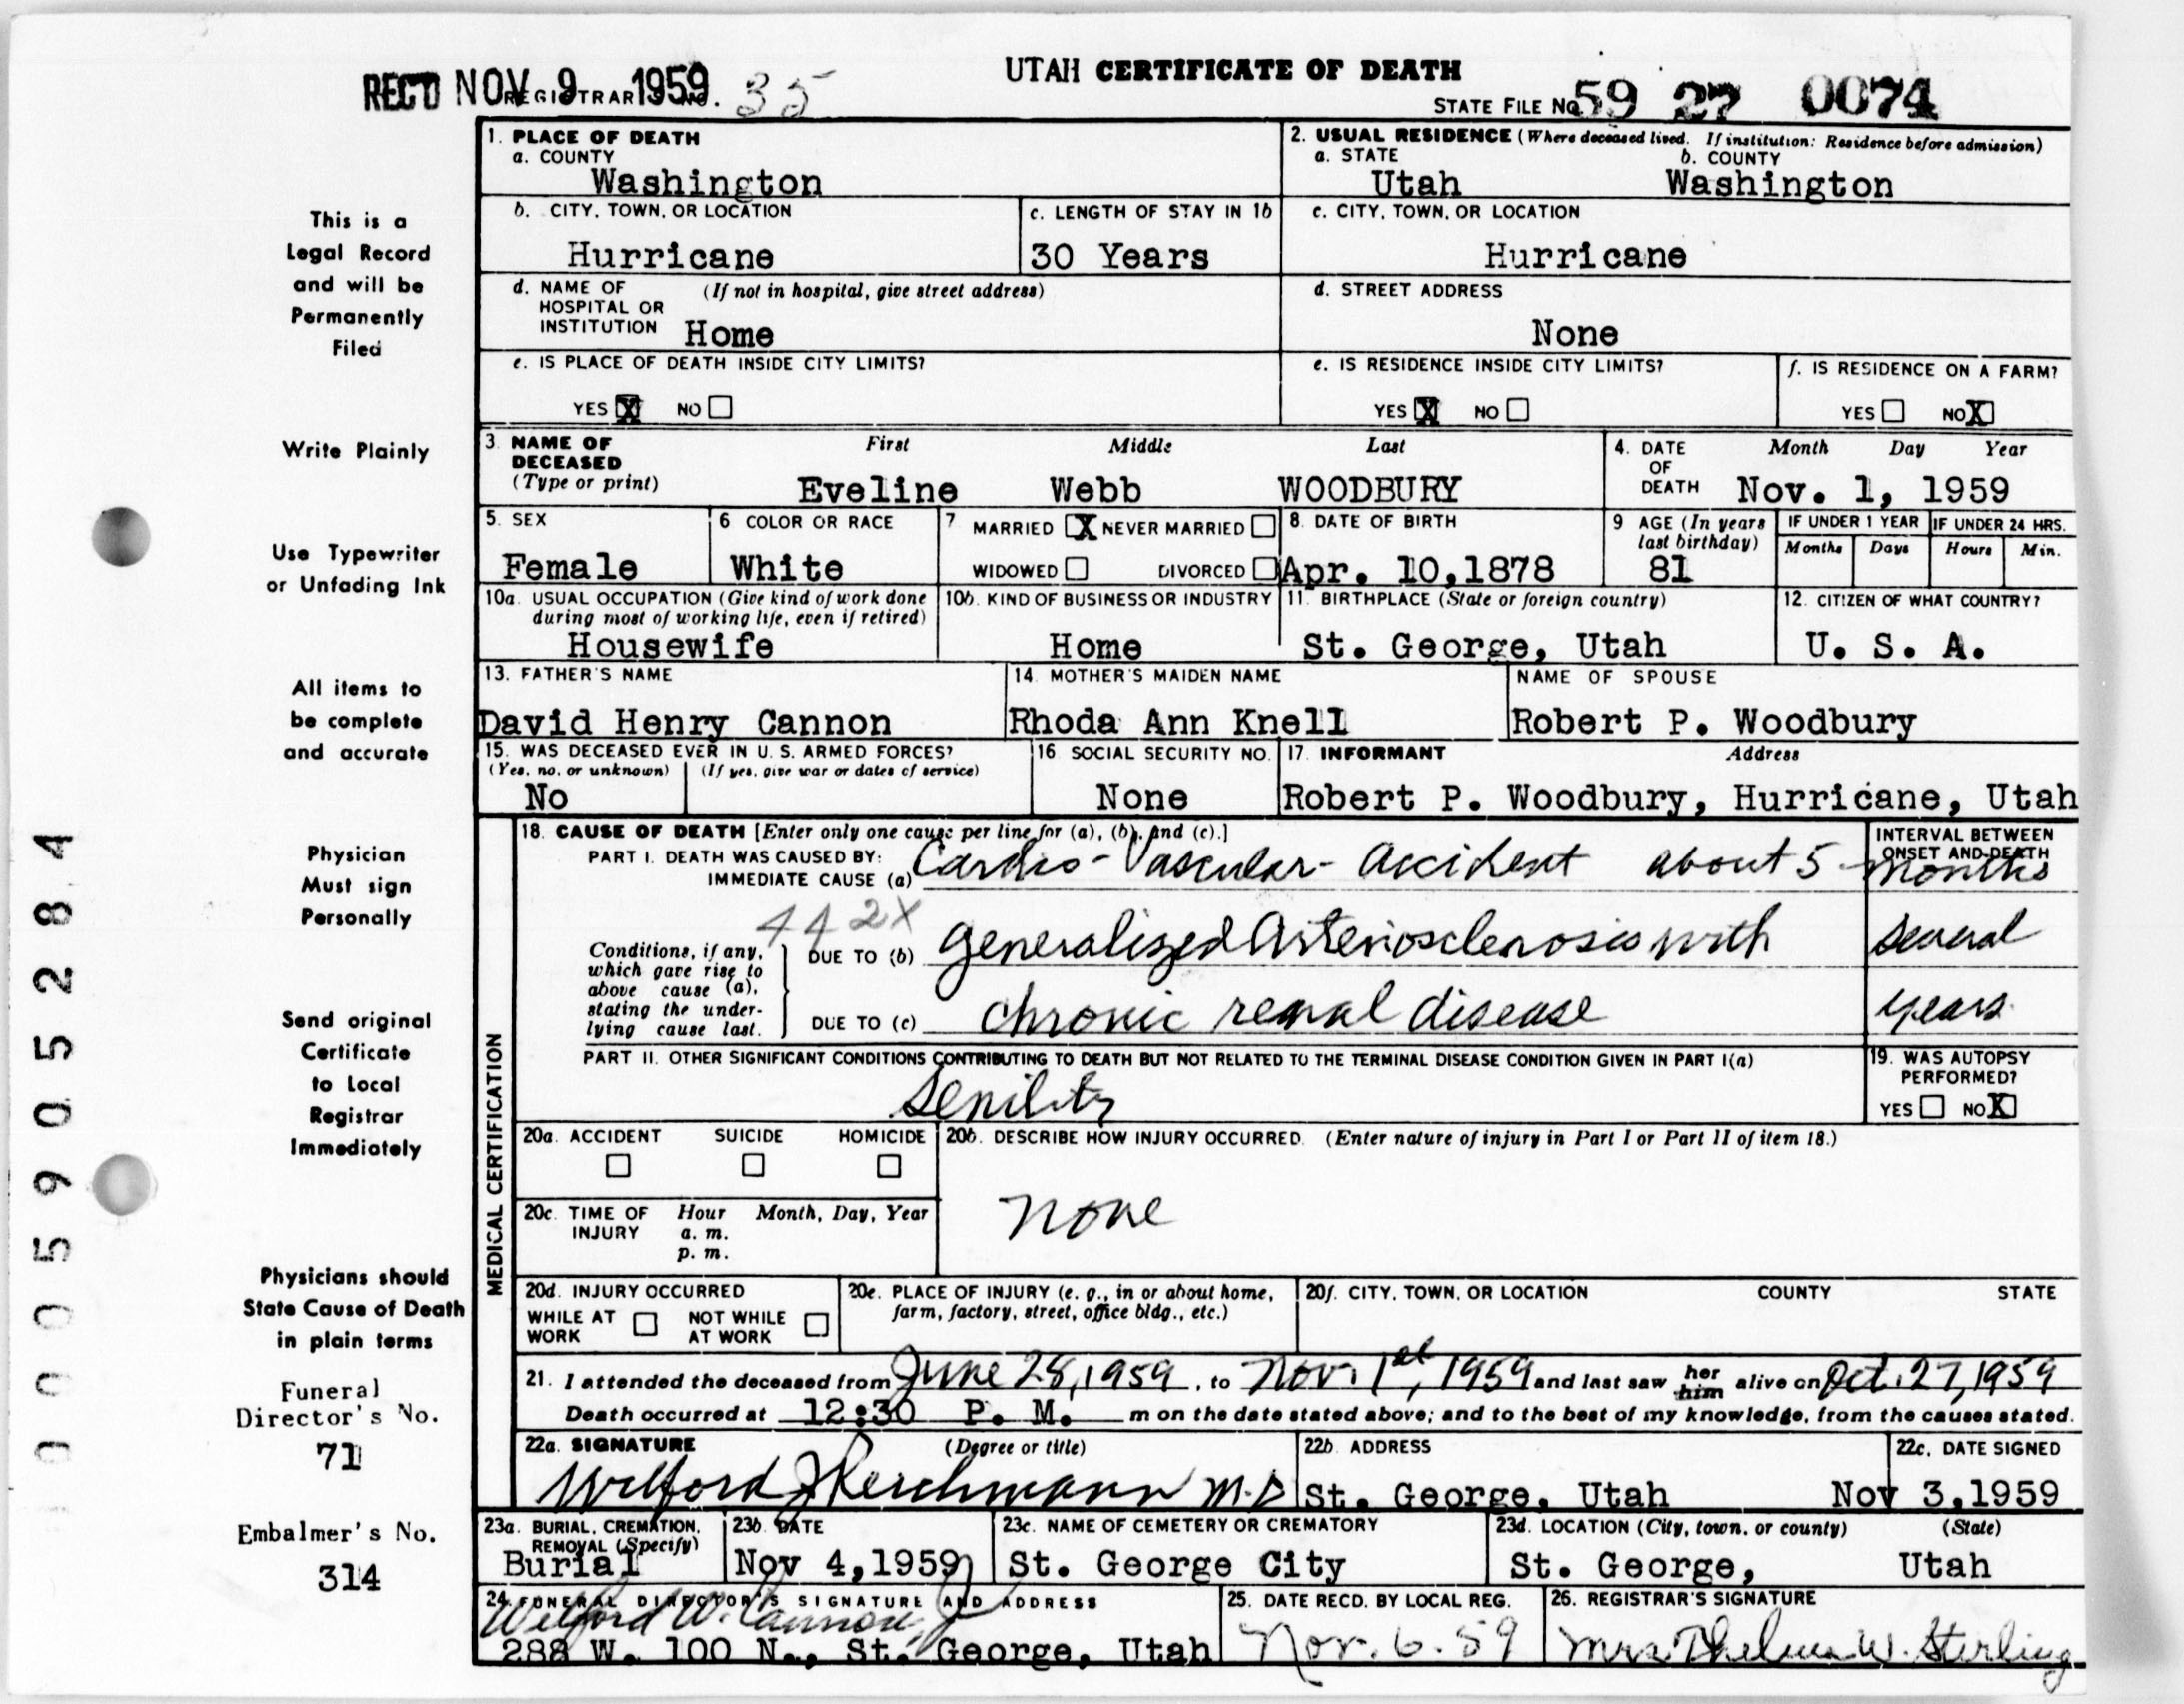 UTAH CERTIFICATE OF DEATH
REC'D NOV 9 1959 REGISTRAR NO. 35
STATE FILE NO. 59 27 0074
This is a
Legal Record
and will be
Permanently
Filed
Write Plainly
Use Typewriter
or Unfading Ink
All items to
be complete
and accurate
Physician
Must sign
Personally
Send original
Certificate
to Local
Registrar
Immediately
Physicians should
State Cause of Death
in plain terms
Funeral
Director's No.
71
Embalmer's No.
314
000590 5284
1. PLACE OF DEATH
a. COUNTY
Washington
2. USUAL RESIDENCE (Where deceased lived. If institution: Residence before admission)
a. STATE b. COUNTY
Utah Washington
b. CITY, TOWN, OR LOCATION
Hurricane
c. LENGTH OF STAY IN 1b
30 Years
c. CITY, TOWN, OR LOCATION
Hurricane
d. NAME OF (If not in hospital, give street address)
HOSPITAL OR
INSTITUTION Home
d. STREET ADDRESS
None
e. IS PLACE OF DEATH INSIDE CITY LIMITS?
YES X NO
e. IS RESIDENCE INSIDE CITY LIMITS?
YES X NO
f. IS RESIDENCE ON A FARM?
YES NO X
3. NAME OF First Middle Last
DECEASED
(Type or print) Eveline Webb WOODBURY
4. DATE Month Day Year
OF
DEATH Nov. 1, 1959
5. SEX
Female
6 COLOR OR RACE
White
7 MARRIED X NEVER MARRIED
WIDOWED DIVORCED
8. DATE OF BIRTH
Apr. 10,1878
9 AGE (In years
last birthday)
81
IF UNDER 1 YEAR IF UNDER 24 HRS.
Months Days Hours Min.
10a. USUAL OCCUPATION (Give kind of work done
during most of working life, even if retired)
Housewife
10b. KIND OF BUSINESS OR INDUSTRY
Home
11. BIRTHPLACE (State or foreign country)
St. George, Utah
12. CITIZEN OF WHAT COUNTRY?
U. S. A.
13. FATHER'S NAME
David Henry Cannon
14. MOTHER'S MAIDEN NAME
Rhoda Ann Knell
NAME OF SPOUSE
Robert P. Woodbury
15. WAS DECEASED EVER IN U. S. ARMED FORCES?
(Yes, no, or unknown) (If yes, give war or dates of service)
No
16 SOCIAL SECURITY NO.
None
17. INFORMANT Address
Robert P. Woodbury, Hurricane, Utah
MEDICAL CERTIFICATION
18. CAUSE OF DEATH [Enter only one cause per line for (a), (b), and (c).]
INTERVAL BETWEEN
ONSET AND DEATH
PART I. DEATH WAS CAUSED BY:
IMMEDIATE CAUSE (a) Cardio-Vascular-Accident about 5 months
442X
Conditions, if any,
which gave rise to
above cause (a),
stating the under-
lying cause last.
DUE TO (b) generalized Arteriosclerosis with several
DUE TO (c) chronic renal disease years.
PART II. OTHER SIGNIFICANT CONDITIONS CONTRIBUTING TO DEATH BUT NOT RELATED TO THE TERMINAL DISEASE CONDITION GIVEN IN PART I(a)
Senility
19. WAS AUTOPSY
PERFORMED?
YES NO X
20a. ACCIDENT SUICIDE HOMICIDE
20b. DESCRIBE HOW INJURY OCCURRED. (Enter nature of injury in Part I or Part II of item 18.)
none
20c. TIME OF Hour Month, Day, Year
INJURY a. m.
p. m.
20d. INJURY OCCURRED
WHILE AT WORK NOT WHILE AT WORK
20e. PLACE OF INJURY (e. g., in or about home,
farm, factory, street, office bldg., etc.)
20f. CITY, TOWN, OR LOCATION COUNTY STATE
21. I attended the deceased from June 28, 1959, to Nov. 1st, 1959 and last saw her him alive on Oct. 27, 1959
Death occurred at 12:30 P. M. m on the date stated above; and to the best of my knowledge, from the causes stated.
22a. SIGNATURE (Degree or title)
Wilford J Reichmann M.D
22b. ADDRESS
St. George, Utah
22c. DATE SIGNED
Nov 3,1959
23a. BURIAL, CREMATION,
REMOVAL (Specify)
Burial
23b. DATE
Nov 4,1959
23c. NAME OF CEMETERY OR CREMATORY
St. George City
23d. LOCATION (City, town, or county) (State)
St. George, Utah
24. FUNERAL DIRECTOR'S SIGNATURE AND ADDRESS
Wilford W. Cannon, Jr
288 W. 100 N., St. George, Utah
25. DATE RECD. BY LOCAL REG.
Nov. 6. 59
26. REGISTRAR'S SIGNATURE
Mrs Thelma W. Sterling